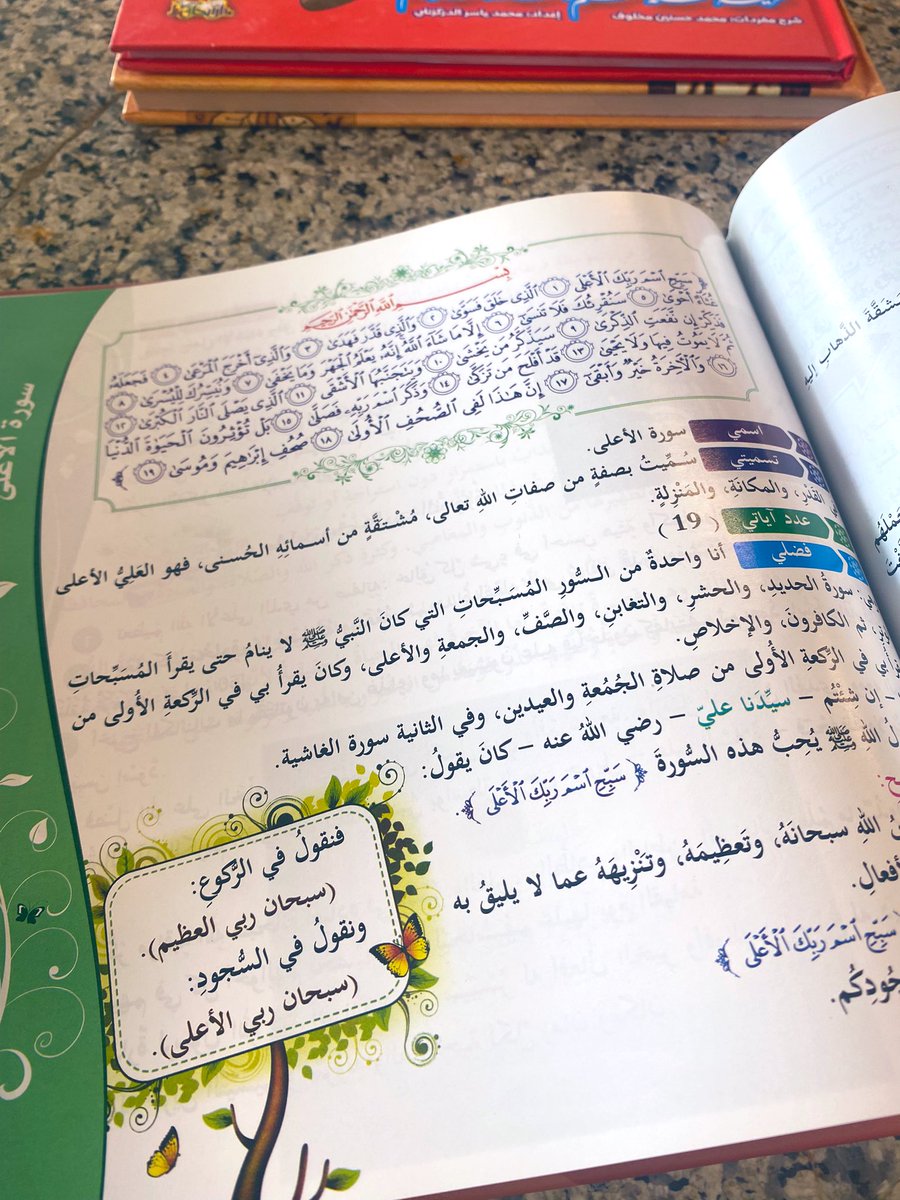 شرح مفردات: محمد حسنين مخلوف إعداد: محمد ياسر الدركزنلي
سورة الأعلى
بِسْمِ اللَّهِ الرَّحْمَٰنِ الرَّحِيمِ
سَبِّحِ ٱسْمَ رَبِّكَ ٱلْأَعْلَى ١ ٱلَّذِى خَلَقَ فَسَوَّىٰ ٢ وَٱلَّذِى قَدَّرَ فَهَدَىٰ ٣ وَٱلَّذِىٓ أَخْرَجَ ٱلْمَرْعَىٰ ٤ فَجَعَلَهُۥ
غُثَآءً أَحْوَىٰ ٥ سَنُقْرِئُكَ فَلَا تَنسَىٰٓ ٦ إِلَّا مَا شَآءَ ٱللَّهُ إِنَّهُۥ يَعْلَمُ ٱلْجَهْرَ وَمَا يَخْفَىٰ ٧ وَنُيَسِّرُكَ لِلْيُسْرَىٰ ٨
فَذَكِّرْ إِن نَّفَعَتِ ٱلذِّكْرَىٰ ٩ سَيَذَّكَّرُ مَن يَخْشَىٰ ١٠ وَيَتَجَنَّبُهَا ٱلْأَشْقَى ١١ ٱلَّذِى يَصْلَى ٱلنَّارَ ٱلْكُبْرَىٰ ١٢
ثُمَّ لَا يَمُوتُ فِيهَا وَلَا يَحْيَىٰ ١٣ قَدْ أَفْلَحَ مَن تَزَكَّىٰ ١٤ وَذَكَرَ ٱسْمَ رَبِّهِۦ فَصَلَّىٰ ١٥ بَلْ تُؤْثِرُونَ ٱلْحَيَوٰةَ ٱلدُّنْيَا
١٦ وَٱلْـَٔاخِرَةُ خَيْرٌ وَأَبْقَىٰٓ ١٧ إِنَّ هَـٰذَا لَفِى ٱلصُّحُفِ ٱلْأُولَىٰ ١٨ صُحُفِ إِبْرَٰهِيمَ وَمُوسَىٰ ١٩
اسمي سورة الأعلى.
تسميتي سُمِّيتُ بصفةٍ من صفاتِ اللهِ تعالى، مُشْتقَّةٍ من أسمائِهِ الحُسنى، فهو العَليُّ الأعلى
القَدْرِ، والمكانَةِ، والمَنْزِلةِ.
عدد آياتي ( 19 )
فضلي أنا واحدةٌ من السُّورِ المُسَبِّحات التي كانَ النَّبيُّ ﷺ لا ينامُ حتى يقرأَ المُسَبِّحاتِ
سورةُ الحديدِ، والحشرِ، والتغابنِ، والصَّفِّ، والجمعة والأعلى، وكانَ يقرأُ بي في الرَّكعةِ الأُولى من
ثم الكافرونَ، والإخلاصِ.
في الرَّكعة الأُولى من صلاةِ الجُمُعةِ والعيدين، وفي الثانية سورة الغاشية.
– إن شِئْتُم – سيِّدَنا عليّ – رضي اللهُ عنه – كانَ يقولُ:
اللهِ ﷺ يُحِبُّ هذه السُّورةَ ﴿سَبِّحِ ٱسْمَ رَبِّكَ ٱلْأَعْلَى﴾.
اللهِ سبحانَهُ، وتَعظِيمَهُ، وتَنْزِيهَهُ عما لا يليقُ به
﴿سَبِّحِ ٱسْمَ رَبِّكَ ٱلْأَعْلَى﴾
فنقولُ في الرُّكوعِ:
(سبحان ربي العظيم).
ونقولُ في السُّجودِ:
(سبحان ربي الأعلى).
الذَّهابِ إليه